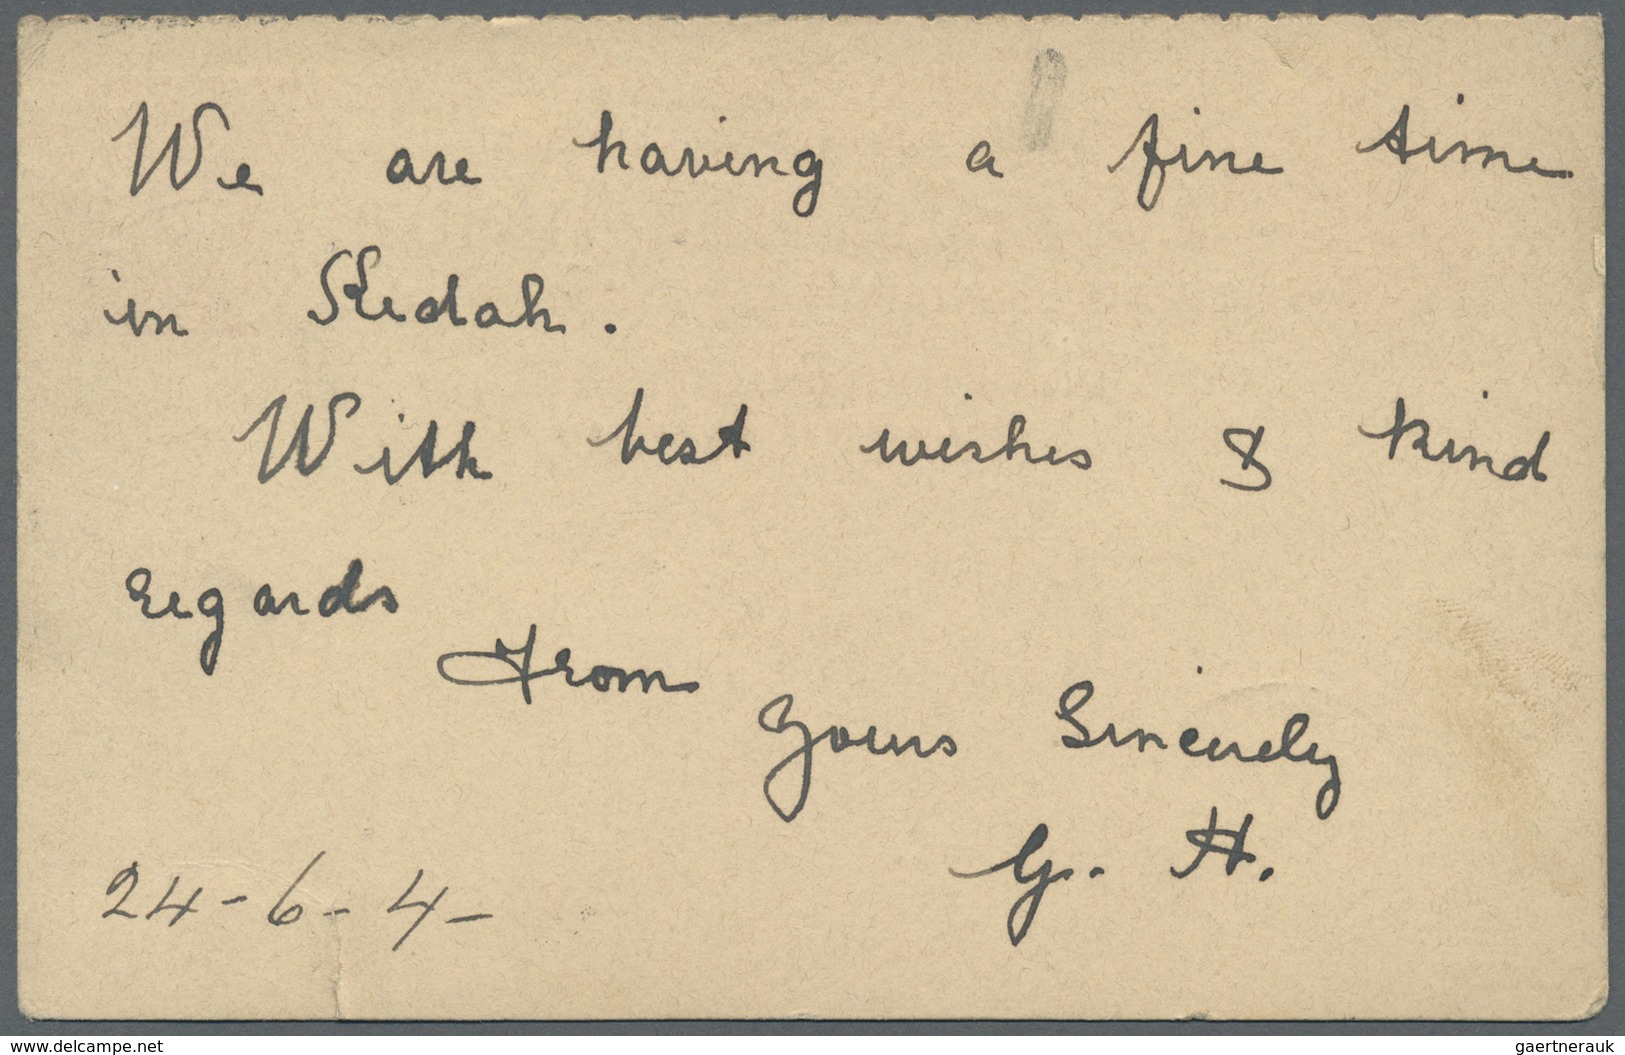 We are having a fine time
in Kedah.
With best wishes & kind
regards
From
Yours Sincerely
G. H.
24-6-4-
www.delcampe.net
gaertnerauk